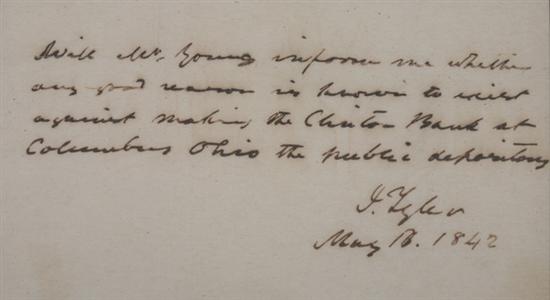 Will Mr. Young inform me whether
any good reason is known to exist
against making the Clinton Bank at
Columbus Ohio the public depository
J. Tyler
May 16. 1842